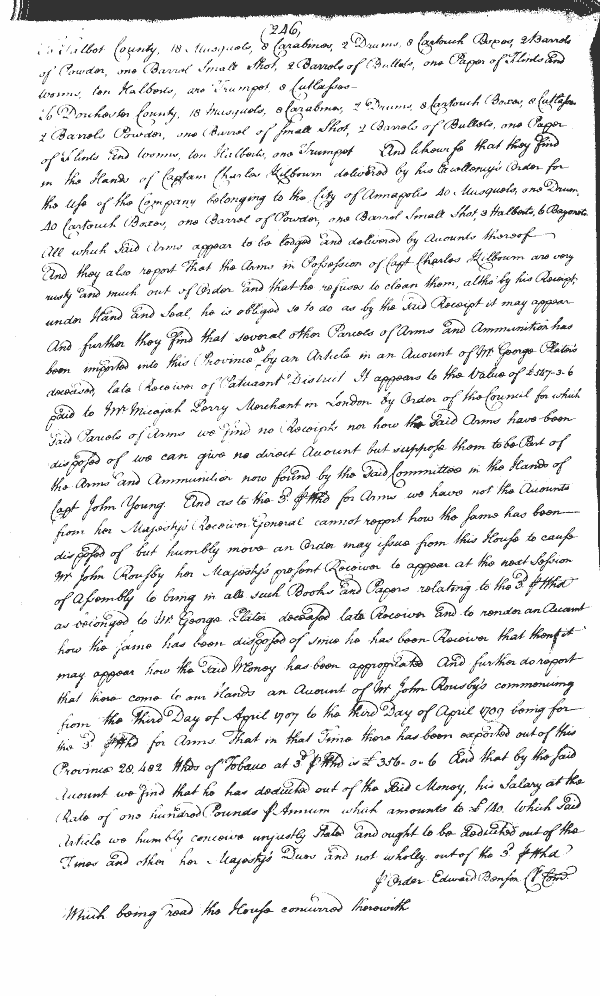 (246)
To Talbot County, 18 Musquets, 8 Carabines, 2 Drums, 8 Cartouch Boxes, 2 Barrels
of Powder, one Barrel Small Shot, 2 Barrels of Bullets, one Paper of Flints and
Worms, ten Halberts, one Trumpet, 8 Cutlasses
To Dorchester County, 18 Musquets, 8 Carabines, 2 Drums, 8 Cartouch Boxes, 8 Cutlasses
2 Barrels Powder, one Barrel of Small Shot, 2 Barrels of Bullets, one Paper
of Flints and Worms, ten Halberts, one Trumpet And likewise that they find
in the Hands of Captam Charles Kilbourn delivered by his Excellency's Order for
the Use of the Company belonging to the City of Annapolis 40 Musquets, one Drum,
40 Cartouch Boxes, one Barrel of Powder, one Barrel Small Shot, 3 Halberts, 6 Bayonets
All which Said Arms appear to be lodged and delivered by Accounts thereof
And they also report That the Arms in Possession of Capt Charles Kilbourn are very
rusty and much out of Order and that he refuses to clean them, altho by his Receipt,
under Hand and Seal, he is obliged so to do as by the Said Receipt it may appear
And further they find that several other Parcels of Arms and Ammunition has
been imported into this Province as by an Article in an Account of Mr George Plater's
deceased, late Receiver of Patuxent District It appears to the Value of £387.3.6
paid to Mr Micajah Perry Merchant in London by Order of the Council for which
Said Parcels of Arms we find no Receipts nor how the Said Arms have been
disposed of we can give no direct Account but suppose them to be Part of
the Arms and Ammunition now found by the Said Committee in the Hands of
Capt John Young. And as to the 3d ⅌ Hhd for Arms we have not the Accounts
from her Majesty's Receiver General cannot report how the Same has been
disposed of but humbly move an Order may issue from this House to cause
Mr John Rousby her Majesty's present Receiver to appear at the next Session
of Assembly to bring in all such Books and Papers relating to the 3d ⅌ Hhd
as belonged to Mr George Plater deceased late Receiver and to render an Account
how the Same has been disposed of since he has been Receiver that thereof it
may appear how the Said Money has been appropriated And further do report
that there come to our Hands an Account of Mr John Rousby's commencing
from the third Day of April 1707 to the third Day of April 1709 being for
the 3d ⅌ Hhd for Arms That in that Time there has been exported out of this
Province 28,482 Hhds of Tobacco at 3d ⅌ Hhd is £356.0.6 And that by the Said
Account we find that he has deducted out of the Said Money, his Salary at the
Rate of one hundred Pounds ⅌ Annum which amounts to £140. Which Said
Article we humbly conceive unjustly Stated and ought to be deducted out of the
Fines and other her Majesty's Dues and not wholly out of the 3d ⅌ Hhd
⅌ Order Edward Benson Cl Com.
Which being read the House concurred therewith